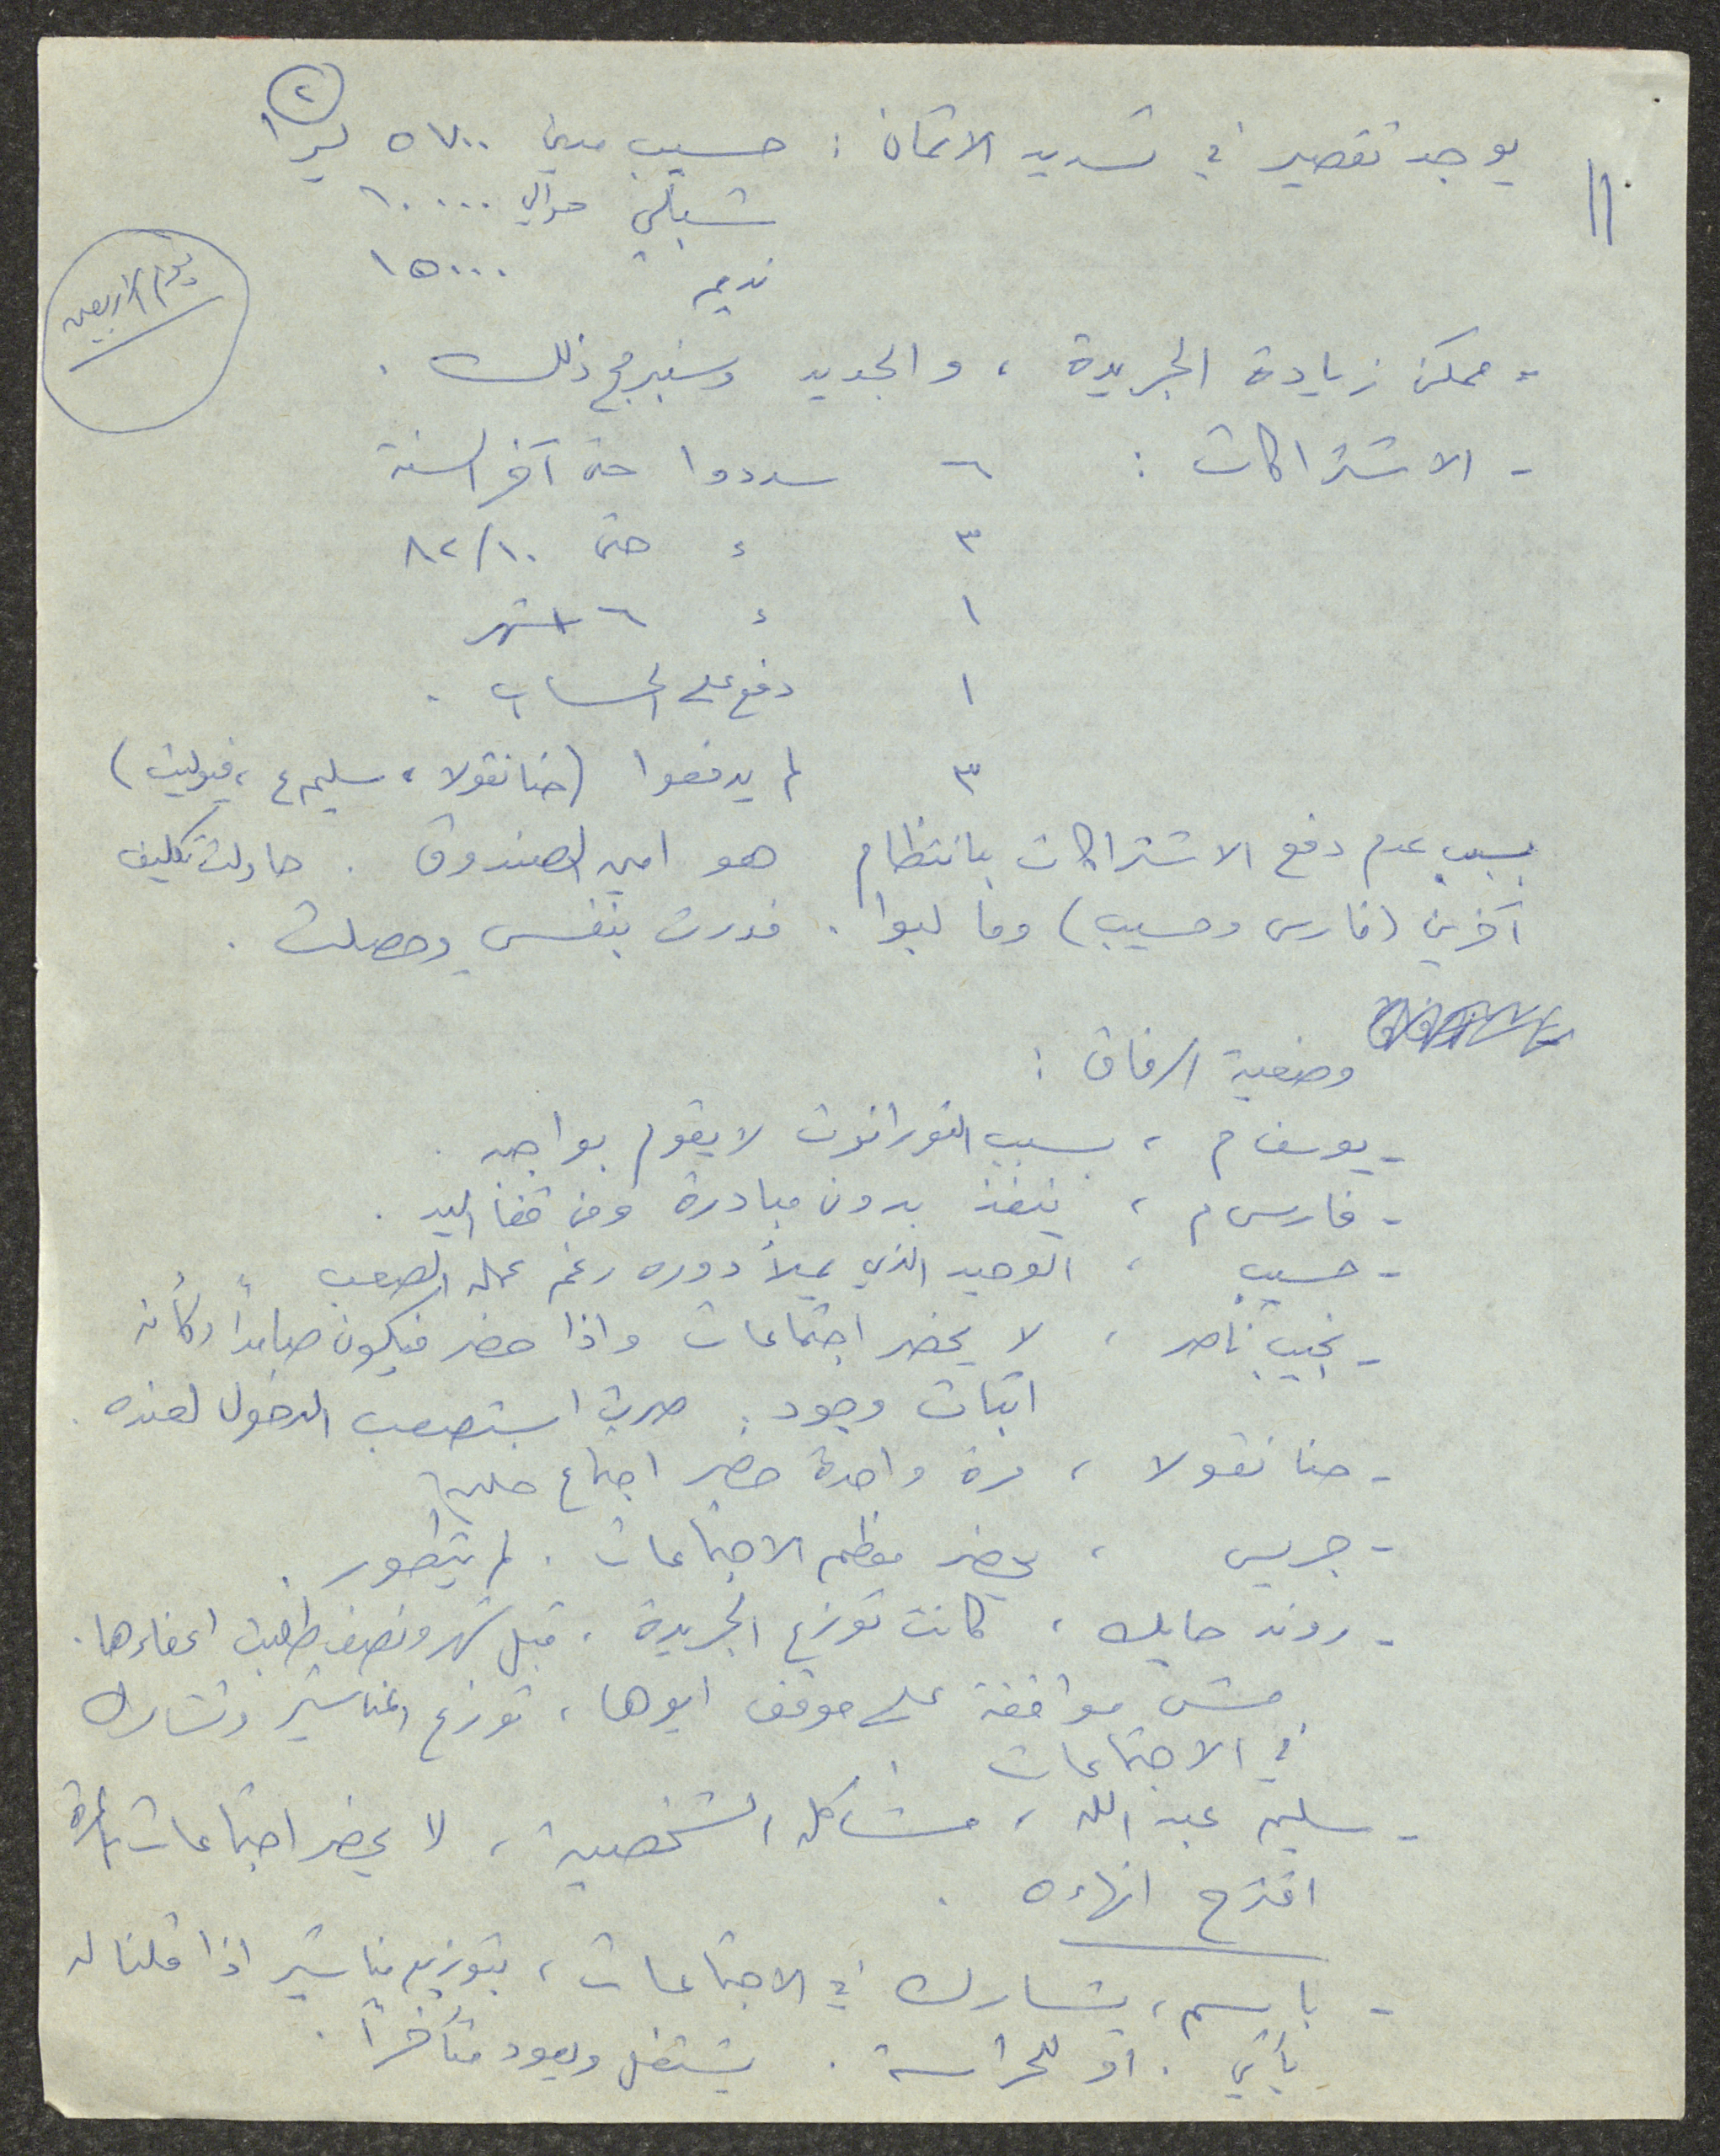 ٢
يوجد تقصير في تسديد الاثمان : حسيب مدين ٥٧٠٠ ليرا
شبلي حوالي ١٠٠٠٠
نديم ١٥٠٠٠
يوم الاربعين
- ممكن زيادة الجريدة ، والجديد وسنبرمج ذلك .
- الاشتراكات : ٦ سددوا حتى آخر السنة
٣ ء حتى ٨٢/١٠
١ ء ٦ اشهر
١ دفع على الحساب .
٣ لم يدفعوا (حنا نقولا ، سليم ع ، فيوليت)
بسبب عدم دفع الاشتراكات بانتظام هو امين الصندوق . حاولت تكليف
آخرين (فارس وحسيب) وما لبوا . فدرت بنفسي وحصلت .
وضعية الرفاق :
- يوسف م ، بسبب لا يقوم بواجبه .
- فارس م ، ينفذ بدون مبادرة ومن قفا اليد .
- حسيب ، الوحيد الذي يملأ دوره رغم عمله الصعب
- نجيب ناصر ، لا يحضر اجتماعات واذا حضر فيكون صامداً وكأنه
اثبات وجود . صرت استصعب الدخول لعنده .
- حنا نقولا ، مرة واحدة حضر اجتماع
- جريس ، يحضر معظم الاجتماعات . لم يتطور .
- روند حايك ، كانت توزع الجريدة . قبل شهر ونصف طلبت اعفاءها .
مش موافقة على موقف ابوها ، توزع المناشير وتشارك
في الاجتماعات .
- سليم عبد الله ، مشاكله الشخصية ، لا يحضر اجتماعات بالمرة
اقترح انهاءه .
- باسم ، يشارك في الاجتماعات ، بتوزيع مناشير اذا قلنا له
يأتي . او للحراسة . يشتغل ويعود متأخراً .